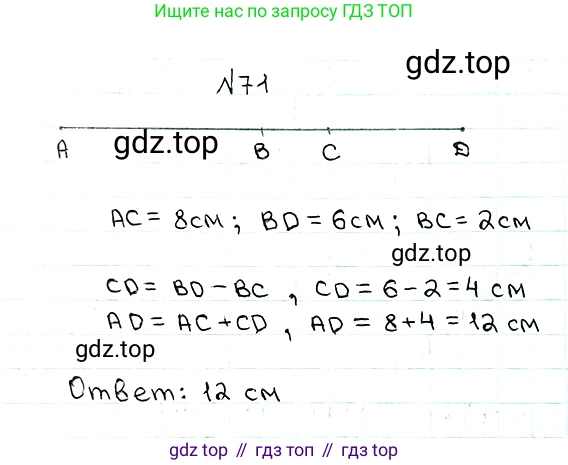 Ищите нас по запросу ГДЗ ТОП
gdz.top
№71
gdz.top
A B C D
AC = 8см; BD = 6см; BC = 2см
gdz.top
CD = BD - BC, CD = 6 - 2 = 4 см
AD = AC + CD, AD = 8 + 4 = 12 см
gdz.top
Ответ: 12 см
gdz.top // гдз топ // гдз.top